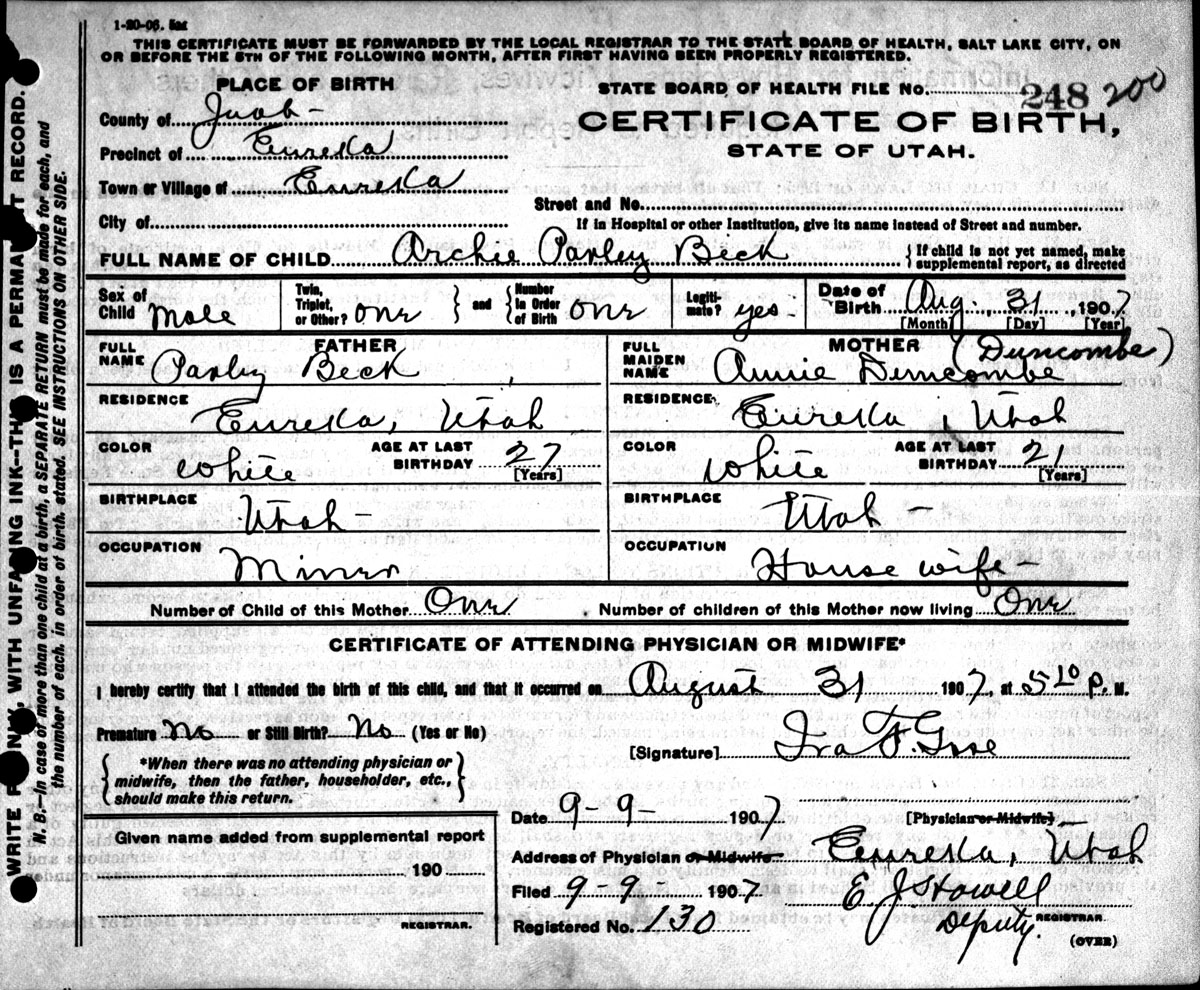 1-20-06.
THIS CERTIFICATE MUST BE FORWARDED BY THE LOCAL REGISTRAR TO THE STATE BOARD OF HEALTH, SALT LAKE CITY, ON
OR BEFORE THE 5TH OF THE FOLLOWING MONTH, AFTER FIRST HAVING BEEN PROPERLY REGISTERED.
PLACE OF BIRTH
STATE BOARD OF HEALTH FILE NO. 248 200
County of Juab-
CERTIFICATE OF BIRTH,
Precinct of Eureka
STATE OF UTAH.
Town or Village of Eureka
Street and No.
City of
If in Hospital or other Institution, give its name instead of Street and number.
FULL NAME OF CHILD Archie Parley Beck { If child is not yet named, make
supplemental report, as directed
Sex of Child Male
Twin, Triplet, or Other? one } and { Number in Order of Birth one
Legiti- mate? yes-
Date of Birth Aug. 31, 1907
[Month] [Day] [Year]
FATHER
FULL NAME Parley Beck
MOTHER (Duncombe)
FULL MAIDEN NAME Annie Duncombe
RESIDENCE Eureka, Utah
RESIDENCE Eureka, Utah
COLOR White AGE AT LAST BIRTHDAY 27 [Years]
COLOR White AGE AT LAST BIRTHDAY 21 [Years]
BIRTHPLACE Utah-
BIRTHPLACE Utah-
OCCUPATION Miner
OCCUPATION House wife-
Number of Child of this Mother One Number of children of this Mother now living One
CERTIFICATE OF ATTENDING PHYSICIAN OR MIDWIFE*
I hereby certify that I attended the birth of this child, and that it occurred on August 31 1907, at 5 10 P. M.
Premature No or Still Birth? No (Yes or No)
[Signature] Ira F.
{ *When there was no attending physician or
midwife, then the father, householder, etc.,
should make this return. }
Date 9-9- 1907 [Physician or Midwife]
Given name added from supplemental report
190
REGISTRAR.
Address of Physician or Midwife- Eureka, Utah
Filed 9-9 1907 E. J. Howell
Registered No. 130 Deputy. REGISTRAR.
(OVER)
WRITE PLAINLY, WITH UNFADING INK—THIS IS A PERMANENT RECORD.
N. B.—In case of more than one child at a birth, a SEPARATE RETURN must be made for each, and
the number of each, in order of birth, stated. SEE INSTRUCTIONS ON OTHER SIDE.